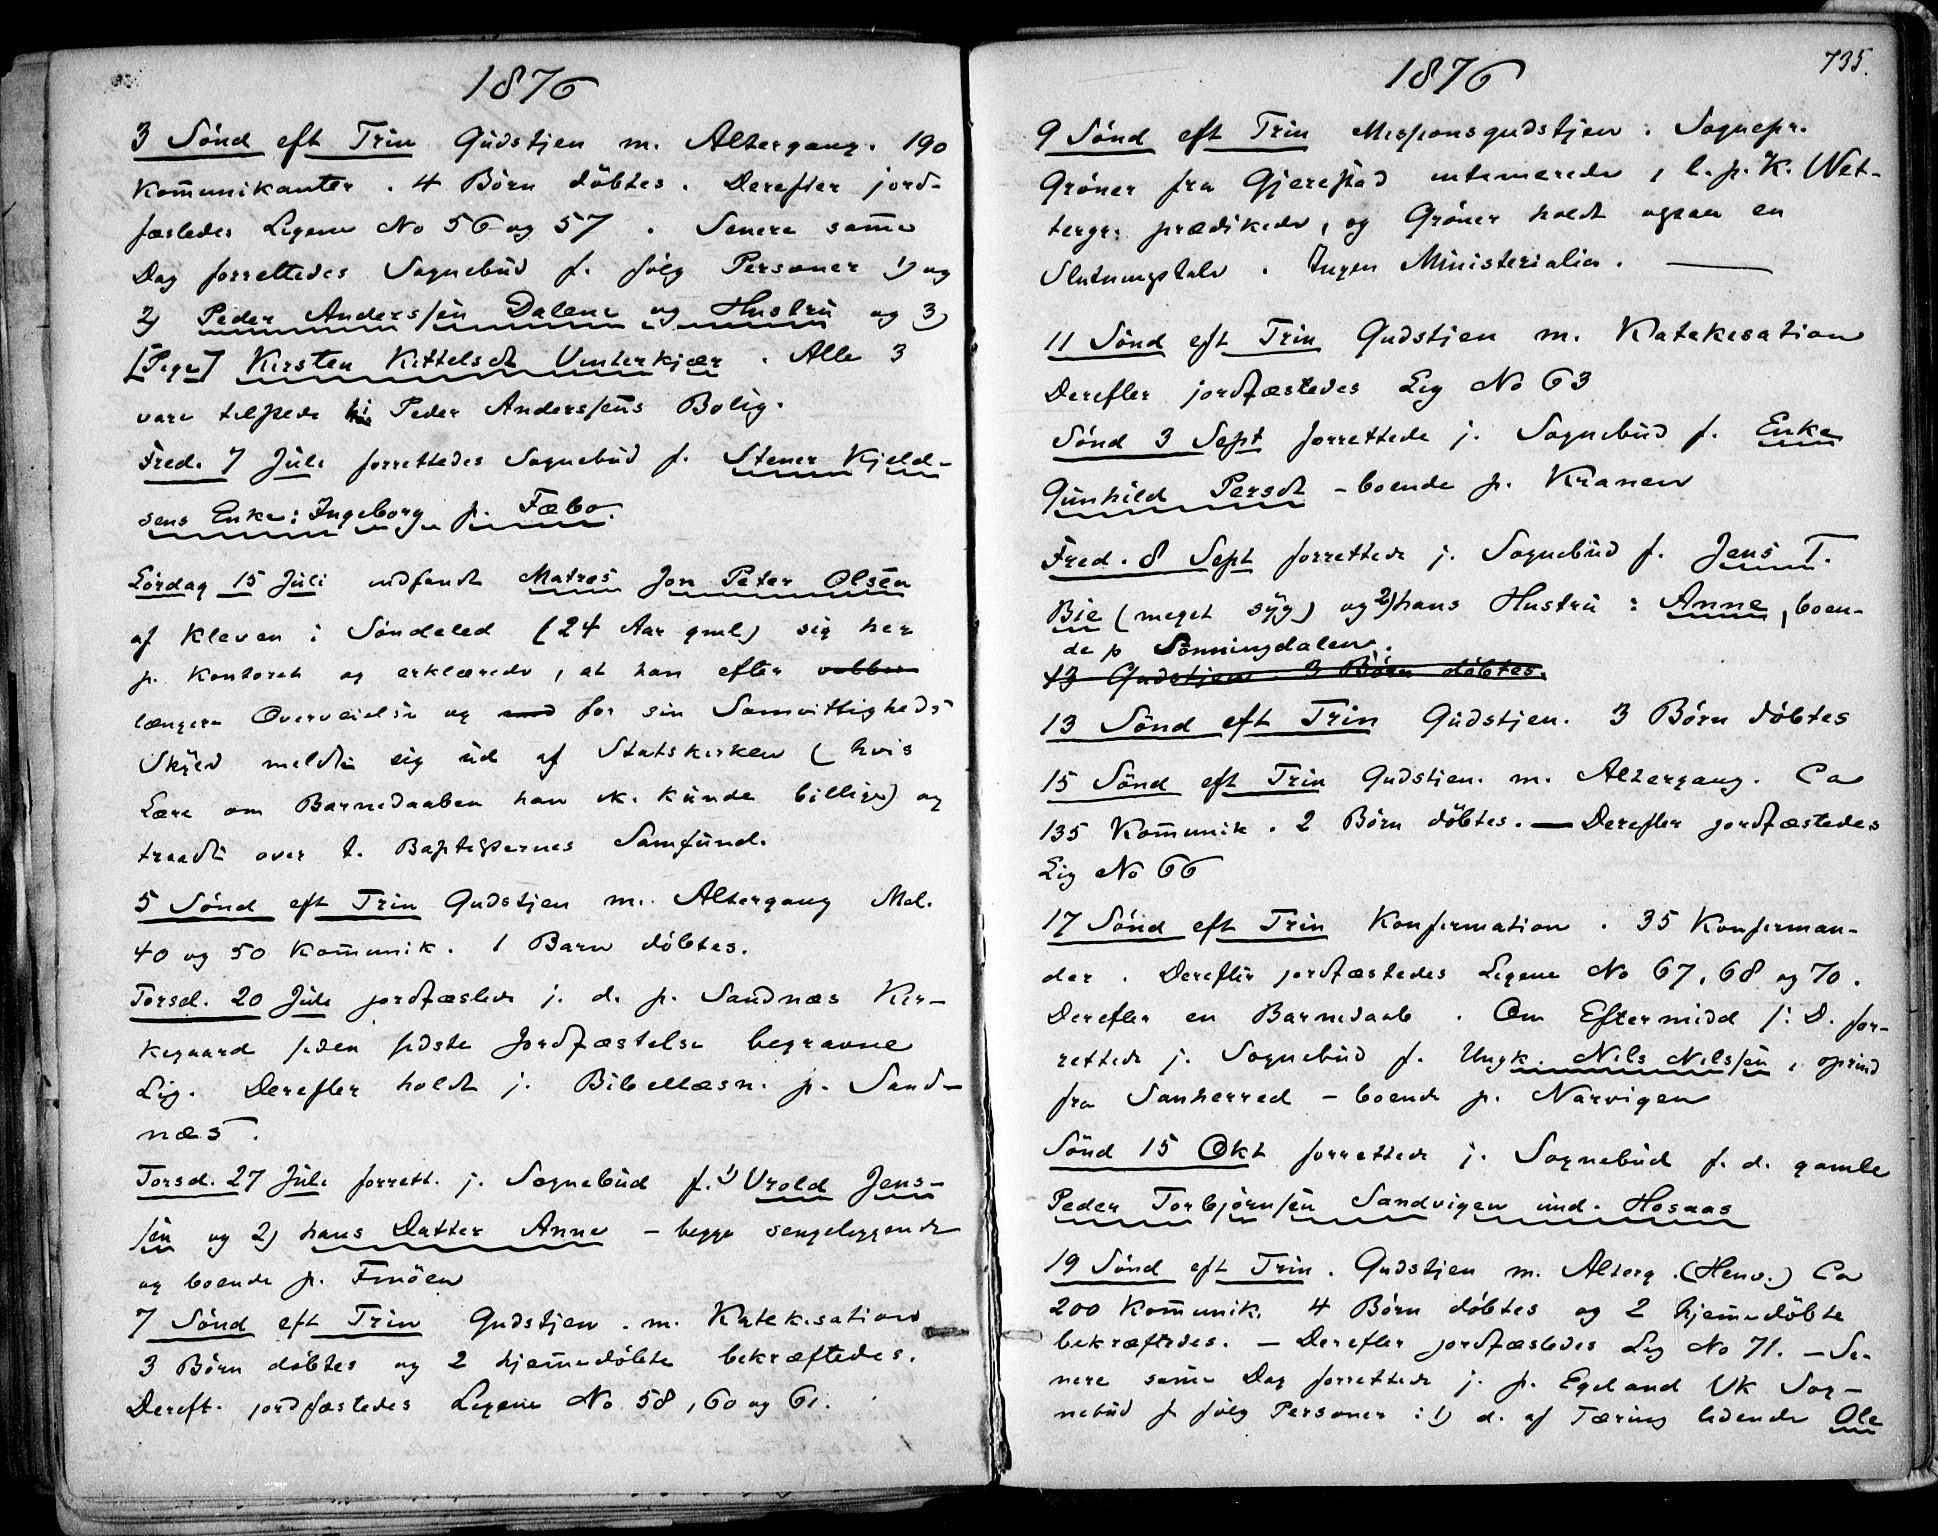 1876
3 Sönd eft Trin Gudstjen m. Altergang. 190
Kom̄unikanter. 4 Börn döbtes. Derefter jord-
fæstedes Ligene No 56 og 57. Senere sam̄e
Dag forrettedes Sognebud f. fölg Personer 1) og
2) Peder Anderssen Dalene og Hustru og 3)
[Pige] Kirsten Kittelsdt Vinterkjær. Alle 3
vare tilstede i Peder Anderssens Bolig.
Fred. 7 Juli forrettedes Sognebud f. Stener Kjeld-
sens Enke: Ingeborg p. Fæbo.
Lördag 15 Juli indfandt Matros Jon Peter Olsen
af Kleven i Söndeled (24 Aar gml) sig her
p. Kontoret og erklærede, at han efter
længere Overveielse og for sin Samvittigheds
Skyld meldte sig ud af Statskirken (hvis
Lære om Barnedaaben han ik. kunde billige) og
traadte over t. Baptisternes Samfund.
5 Sönd eft Trin Gudstjen m. Altergang Mel.
40 og 50 Kom̄unik. 1 Barn döbtes.
Torsd. 20 Juli jordfæstede j. d. p. Sandnæs Kir-
kegaard siden sidste Jordfæstelse begravne
Lig. Derefter holdt j. Bibellæsn. p. Sand-
næs.
Torsd. 27 Juli forrett. j. Sognebud f. 1) Vrold Jens-
sen og 2) hans Datter Anne – begge sengeliggende
og boende p. Finöen
7 Sönd eft Trin Gudstjen. m. Katekisation
3 Börn döbtes og 2 hjem̄edöbte bekræftedes.
Dereft. jordfæstedes Ligene No 58, 60 og 61.
1876
735.
9 Sönd eft Trin Missionsgudstjen. Sognepr.
Gröner fra Gjerestad intimerede, l. p. K. Wet-
tergr. prædikede, og Gröner holdt ogsaa en
Slutningstale. Ingen Ministerialia. —
11 Sönd eft Trin Gudstjen m. Katekesation
Derefter jordfæstedes Lig No 63
Sönd 3 Sept forrettede j. Sognebud f. Enke
Gunhild Persdt – boende p. Kranen
Fred. 8 Sept forrettede j. Sognebud f. Jens T.
Bie (meget syg) og 2) hans Hustru: Anne, boen-
de p Sönningdalen.
13 Gudstjen. 3 Börn döbtes.
13 Sönd eft Trin Gudstjen. 3 Börn döbtes
15 Sönd eft Trin Gudstjen. m. Altergang. Ca
135 Kom̄unik. 2 Börn döbtes. — Derefter jordfæstedes
Lig No 66
17 Sönd eft Trin Konfirmation. 35 Konfirman-
der. Derefter jordfæstedes Ligene No 67, 68 og 70.
Derefter en Barnedaab. Om Eftermidd s: D. for-
rettede j. Sognebud f. Ungk. Nils Nilssen, oprind
fra Sanherred – boende p. Narvigen
Sönd 15 Okt forrettede j. Sognebud f. d. gamle
Peder Torbjörnsen Sandvigen und. Hosaas
19 Sönd eft Trin. Gudstjen m. Alterg. (Henv.) Ca
200 Kom̄unik. 4 Börn döbtes og 2 hjem̄edöbte
bekræftedes. – Derefter jordfæstedes Lig No 71. – Se-
nere sam̄e Dag forrettede j. p. Egeland Vk Sog-
nebud f fölg Personer: 1) d. af Tæring lidende Ole